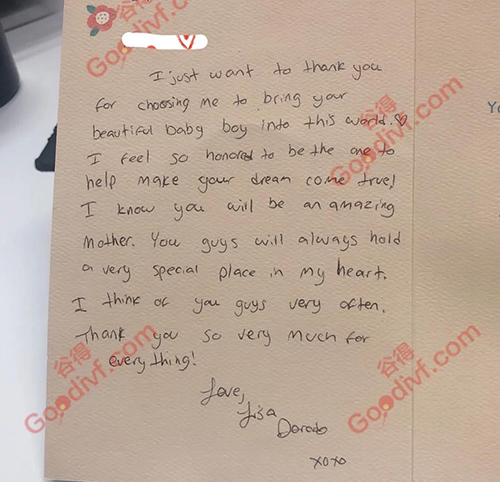 I just want to thank you
for choosing me to bring your
beautiful baby boy into this world.
I feel so honored to be the one to
help make your dream come true!
I know you will be an amazing
mother. You guys will always hold
a very special place in my heart.
I think of you guys very often.
Thank you so very much for
everything!
Love,
Lisa
Dorado
xoxo
谷得
Goodivf.com
谷得
Goodivf.com
谷得
Goodivf.com
谷得
Goodivf.com